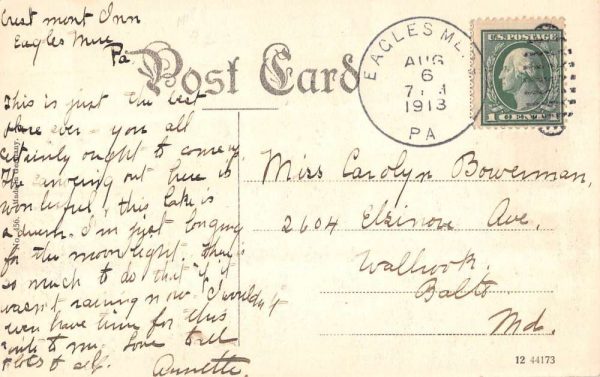 Crest mont Inn
Eagles Mere
Pa.
Post Card
EAGLES ME
AUG
6
1913
PA
U.S. POSTAGE
1 CENT 1
This is just the best
place ever - you all
certainly ought to come up
The canoeing out here is
wonderful, this lake is
a dream. I'm just longing
for the moonlight. There is
so much to do that if it
wasn't raining now I wouldn't
even have time for this
write to me. Love to all
& self.
Annette.
Miss Carolyn Bowerman,
2604 Elsinore Ave.
Walbrook.
Balto
Md.
12 44173